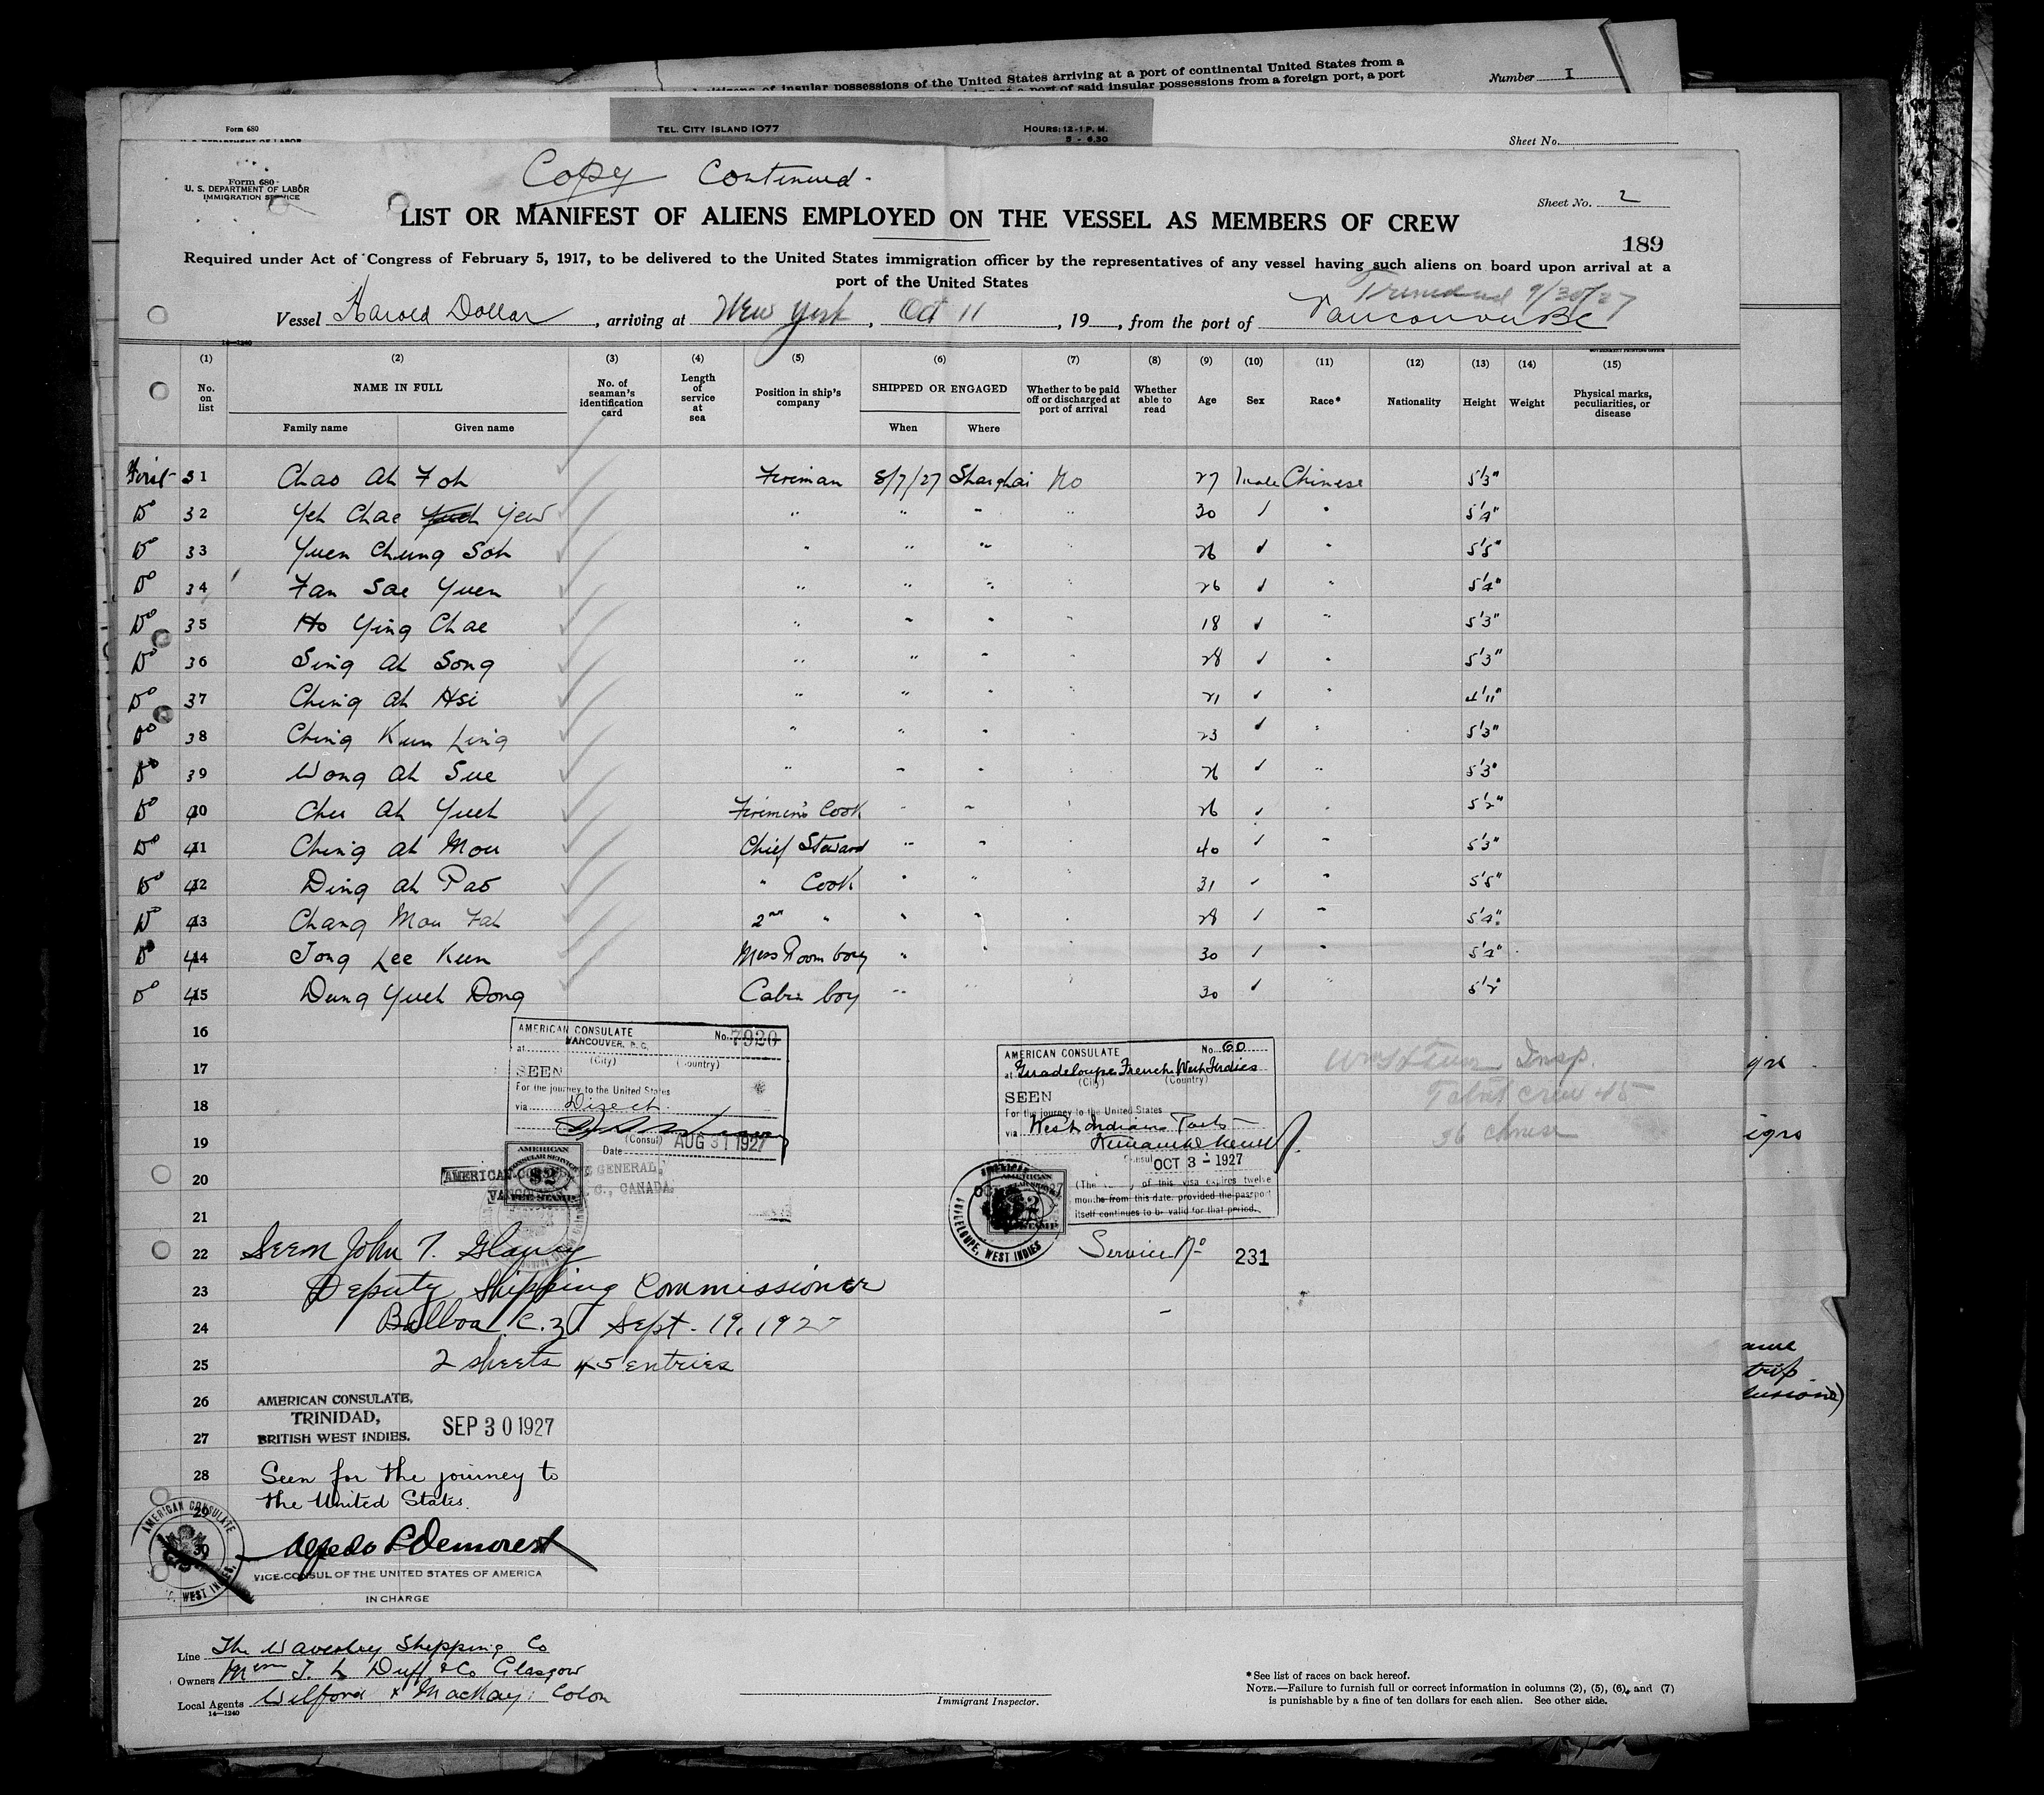 insular possessions of the United States arriving at a port of continental United States from a
port of said insular possessions from a foreign port, a port
Number I
Form 680
TEL. CITY ISLAND 1077
HOURS: 12-1 P. M.
5 - 6.30
Sheet No.
Copy Continued -
Form 680
U. S. DEPARTMENT OF LABOR
IMMIGRATION SERVICE
Sheet No. 2
LIST OR MANIFEST OF ALIENS EMPLOYED ON THE VESSEL AS MEMBERS OF CREW
189
Required under Act of Congress of February 5, 1917, to be delivered to the United States immigration officer by the representatives of any vessel having such aliens on board upon arrival at a
port of the United States
Trinidad 9/30/27
Vessel Harold Dollar, arriving at New York, Oct 11, 19, from the port of Vancouver BC
(1) (2) (3) (4) (5) (6) (7) (8) (9) (10) (11) (12) (13) (14) (15)
No. on list
NAME IN FULL
Family name
Given name
No. of seaman's identification card
Length of service at sea
Position in ship's company
SHIPPED OR ENGAGED
When
Where
Whether to be paid off or discharged at port of arrival
Whether able to read
Age
Sex
Race*
Nationality
Height
Weight
Physical marks, peculiarities, or disease
First 31 Chao Ah Foh Fireman 8/7/27 Shanghai No 27 Male Chinese 5'3"
Do 32 Yeh Chae Yew " " " " 30 ✓ " 5'4"
Do 33 Yuen Chung Soh " " " " 26 ✓ " 5'5"
Do 34 Fan Sae Yuen " " " " 26 ✓ " 5'4"
Do 35 Ho Ying Chae " " " " 18 ✓ " 5'3"
Do 36 Sing Ah Song " " " " 28 ✓ " 5'3"
Do 37 Ching Ah Hsi " " " " 21 ✓ " 4'11"
Do 38 Ching Kun Ling " " " " 23 ✓ " 5'3"
Do 39 Wong Ah Sue " " " " 26 ✓ " 5'3"
Do 40 Chu Ah Yueh Firemen's Cook " " " 26 ✓ " 5'2"
Do 41 Ching Ah Mou Chief Steward " " " 40 ✓ " 5'3"
Do 42 Ding Ah Pao " Cook " " " 31 ✓ " 5'5"
Do 43 Chang Mou Fah 2nd " " " " 28 ✓ " 5'4"
Do 44 Jong Lee Kun Mess Room boy " " " 30 ✓ " 5'4"
Do 45 Dung Yueh Dong Cabin boy " " " 30 ✓ " 5'2"
16
17
18
19
20
21
22
23
24
25
26
27
28
29
30
AMERICAN CONSULATE No. 7920
at VANCOUVER, B. C.
(City) (Country)
SEEN
For the journey to the United States
via Direct
(Consul)
Date AUG 31 1927
AMERICAN CONSULAR SERVICE
$2
FEE STAMP
GENERAL,
CANADA
AMERICAN CONSULATE No. 60
at Guadeloupe French West Indies
(City) (Country)
SEEN
For the journey to the United States
via West Indian Ports
Consul
OCT 3 - 1927
(The of this visa expires twelve
months from this date, provided the passport
itself continues to be valid for that period.
WEST INDIES
Service No 231
Insp.
Total crew 45
36 Chinese
Seen John T. Glancy
Deputy Shipping Commissioner
Balboa C.Z. Sept. 19, 1927
2 sheets 45 entries
AMERICAN CONSULATE,
TRINIDAD,
BRITISH WEST INDIES.
SEP 30 1927
Seen for the journey to
the United States.
AMERICAN CONSULATE
WEST INDIES
Alfredo L Demorest
VICE-CONSUL OF THE UNITED STATES OF AMERICA
IN CHARGE
Line The Waverley Shipping Co
Owners Messrs J. L Duff & Co Glasgow
Local Agents Wilford & MacKay, Colon
14—1240
Immigrant Inspector.
*See list of races on back hereof.
NOTE.—Failure to furnish full or correct information in columns (2), (5), (6), and (7)
is punishable by a fine of ten dollars for each alien. See other side.